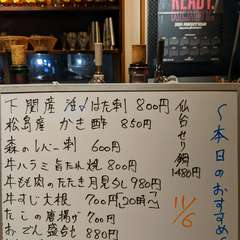 READY.
〈本日のおすすめ
11/6
仙台せり鍋
1480円
下関産 活〆はた刺 800円
松島産 かき酢 850円
森のレバー刺 600円
牛ハラミ旨たれ焼 800円
牛もも肉のたたき月見らし 980円
牛すじ大根 700円 20時〜
たこの唐揚げ 700円
おでん盛合せ 880円